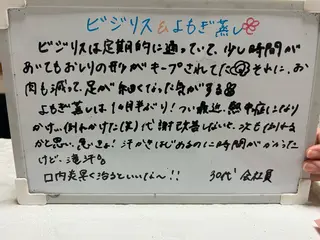 ビジリス&よもぎ蒸し
ビジリスは定期的に通っていて、少し時間が
あいてもおしりの形がキープされてた それに、お
肉も減って、足が細くなった気がする
よもぎ蒸しは1ヶ月半ぶり！つい最近、熱中症になり
かけ…倒れかけた(笑)代謝改善しないと、次も倒れる
かと思い、急きょ！汗がきはじめるのに時間がかかった
けど、滝汗
口内炎早く治るといいな〜！！ 30代 会社員